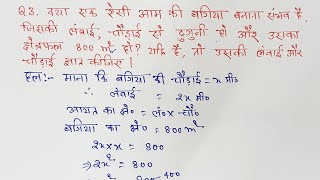 Q3. क्या एक ऐसी आम की बगिया बनाना संभव है,
जिसकी लंबाई, चौड़ाई से दुगुनी हो और उसका
क्षेत्रफल 800 m² हो? यदि है, तो उसकी लंबाई और
चौड़ाई ज्ञात कीजिए।
हल:- माना कि बगिया की चौड़ाई = x मी०
∴ लंबाई = 2x मी०
आयत का क्षे० = ल० x चौ०
बगिया का क्षे० = 800 m²
2x × x = 800
⇒ 2x² = 800
400